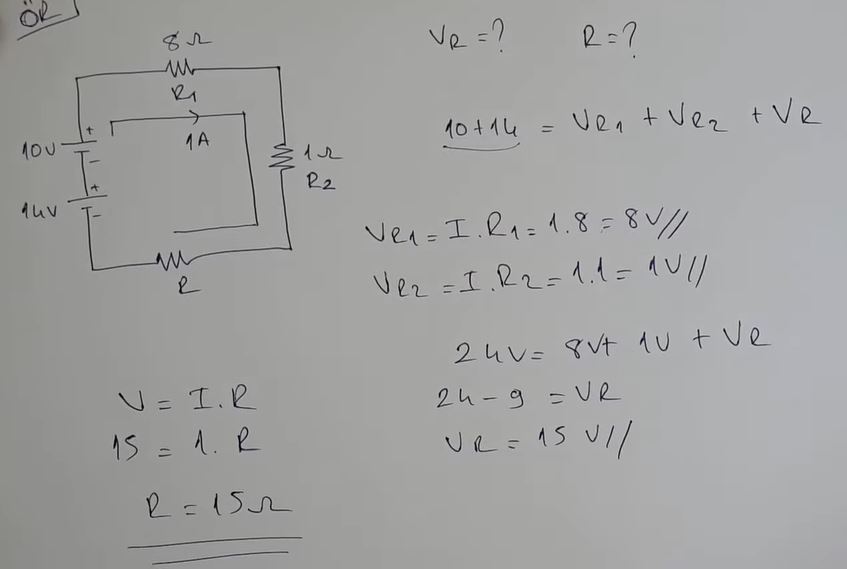 ÖR
8Ω
R1
1A
10V
+
-
14V
+
-
1Ω
R2
R
VR = ? R = ?
10+14 = VR1 + VR2 + VR
VR1 = I.R1 = 1.8 = 8V//
VR2 = I.R2 = 1.1 = 1V//
24V = 8V+ 1V + VR
24 - 9 = VR
VR = 15 V//
V = I.R
15 = 1. R
R = 15Ω